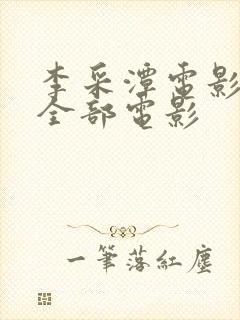 李采潭電影
全部電影
一筆落紅塵